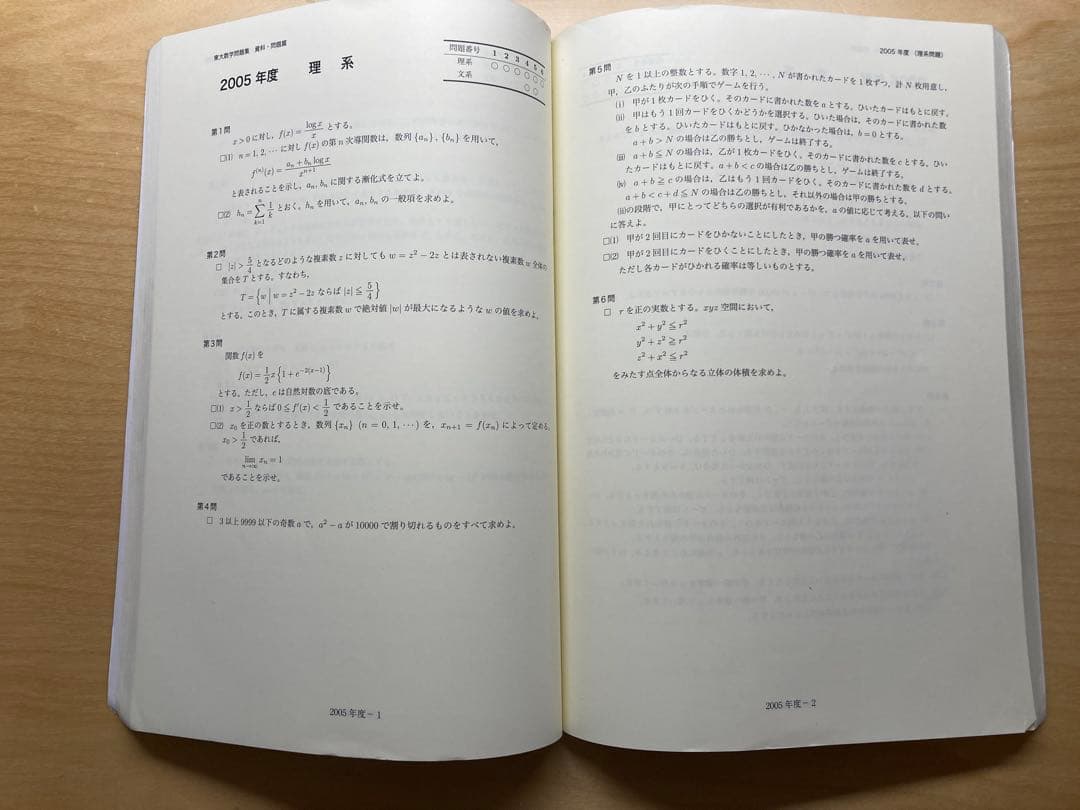 東大数学問題集 資料・問題篇
2005年度 理 系
問題番号 1 2 3 4 5 6
理系 ○ ○ ○ ○ ○ ○
文系 ○ ○
第1問
x > 0 に対し, f(x) = log x / x とする。
□(1) n = 1, 2, ⋯ に対し f(x) の第 n 次導関数は, 数列 {aₙ}, {bₙ} を用いて,
f⁽ⁿ⁾(x) = (aₙ + bₙ log x) / xⁿ⁺¹
と表されることを示し, aₙ, bₙ に関する漸化式を立てよ。
□(2) hₙ = Σ_{k=1}^{n} 1/k とおく。hₙ を用いて, aₙ, bₙ の一般項を求めよ。
第2問
□ |z| > 5/4 となるどのような複素数 z に対しても w = z² − 2z とは表されない複素数 w 全体の
集合を T とする。すなわち,
T = { w | w = z² − 2z ならば |z| ≦ 5/4 }
とする。このとき, T に属する複素数 w で絶対値 |w| が最大になるような w の値を求めよ。
第3問
関数 f(x) を
f(x) = 1/2 x {1 + e^{−2(x−1)}}
とする。ただし, e は自然対数の底である。
□(1) x > 1/2 ならば 0 ≦ f′(x) < 1/2 であることを示せ。
□(2) x₀ を正の数とするとき, 数列 {xₙ} (n = 0, 1, ⋯) を, xₙ₊₁ = f(xₙ) によって定める。
x₀ > 1/2 であれば,
lim_{n→∞} xₙ = 1
であることを示せ。
第4問
□ 3 以上 9999 以下の奇数 a で, a² − a が 10000 で割り切れるものをすべて求めよ。
2005年度−1
2005年度 (理系問題)
第5問
N を 1 以上の整数とする。数字 1, 2, ⋯, N が書かれたカードを 1 枚ずつ, 計 N 枚用意し,
甲, 乙のふたりが次の手順でゲームを行う。
(i) 甲が 1 枚カードをひく。そのカードに書かれた数を a とする。ひいたカードはもとに戻す。
(ii) 甲はもう 1 回カードをひくかどうかを選択する。ひいた場合は, そのカードに書かれた数
を b とする。ひいたカードはもとに戻す。ひかなかった場合は, b = 0 とする。
a + b > N の場合は乙の勝ちとし, ゲームは終了する。
(iii) a + b ≦ N の場合は, 乙が 1 枚カードをひく。そのカードに書かれた数を c とする。ひい
たカードはもとに戻す。a + b < c の場合は乙の勝ちとし, ゲームは終了する。
(iv) a + b ≧ c の場合は, 乙はもう 1 回カードをひく。そのカードに書かれた数を d とする。
a + b < c + d ≦ N の場合は乙の勝ちとし, それ以外の場合は甲の勝ちとする。
(ii)の段階で, 甲にとってどちらの選択が有利であるかを, a の値に応じて考える。以下の問い
に答えよ。
□(1) 甲が 2 回目にカードをひかないことにしたとき, 甲の勝つ確率を a を用いて表せ。
□(2) 甲が 2 回目にカードをひくことにしたとき, 甲の勝つ確率を a を用いて表せ。
ただし各カードがひかれる確率は等しいものとする。
第6問
□ r を正の実数とする。xyz 空間において,
x² + y² ≦ r²
y² + z² ≧ r²
z² + x² ≦ r²
をみたす点全体からなる立体の体積を求めよ。
2005年度−2